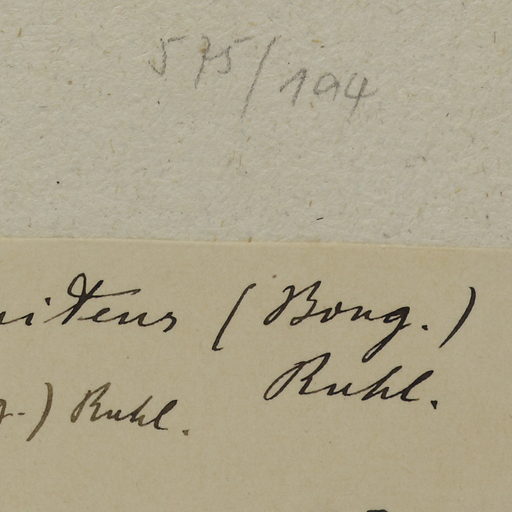 575/194
nitens (Bong.)
Ruhl.
g.) Ruhl.